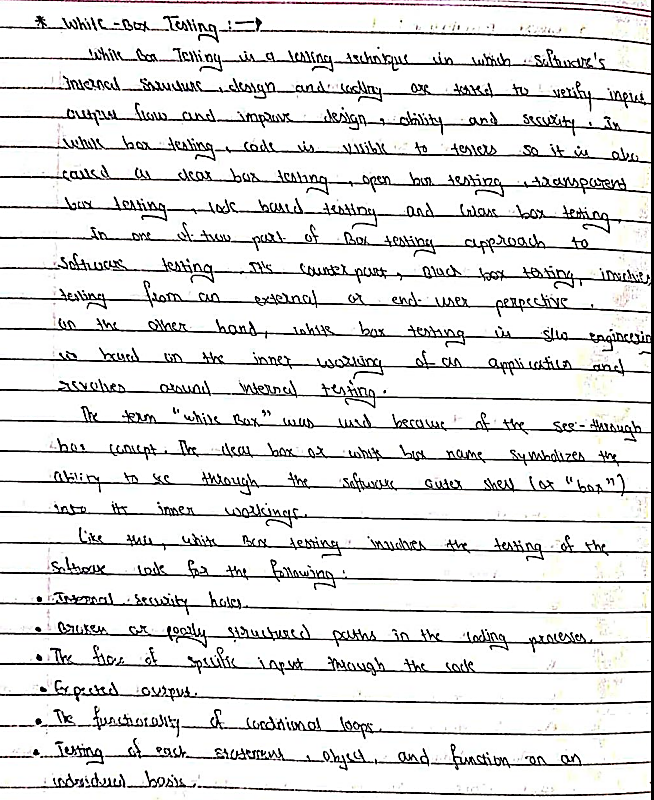 * White-Box Testing :→
White Box Testing is a testing technique in which software's
internal structure, design and coding are tested to verify input
output flow and improve design, ability and security. In
white box testing, code is visible to testers so it is also
called as clear box testing, open box testing, transparent
box testing, code based testing and Glass box testing.
In one of two part of Box testing approach to
software testing. It's counterpart, Black box testing, involves
testing from an external or end-user perpective.
on the other hand, white box testing in s/w engineering
is based on the inner working of an application and
revolves around internal testing.
The term "White Box" was used because of the see-through
box concept. The clear box or white box name symbolizes the
ability to see through the software outer shell (or "box")
into its inner workings.
Like this, white Box testing involves the testing of the
software code for the following:
• Internal security holes.
• Broken or poorly structured paths in the coding processes.
• The flow of specific input through the code
• Expected output.
• The functionality of conditional loops.
• Testing of each statement, object, and function on an
individual basis.